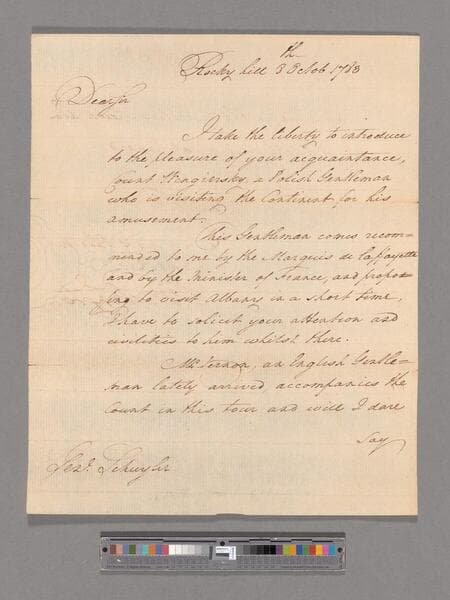 Rocky hill 8th Octob 1783
Dear Sir
I take the liberty to introduce
to the pleasure of your acquaintance,
Count Wengiersky, a Polish Gentleman
who is visiting the Continent for his
amusement.
This Gentleman comes recom=
mended to me by the Marquis de la fayette
and by the Minister of France, and propos=
ing to visit Albany in a short time,
I have to solicit your attention and
civilities to him whilst there.
Mr. Vernon, an English Gentle=
man lately arrived accompanies the
Count in this tour and will I dare
say
Genl. Schuyler